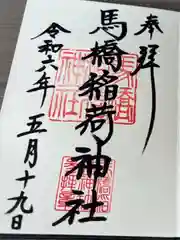 奉拝
馬橋稲荷神社
令和六年五月十九日